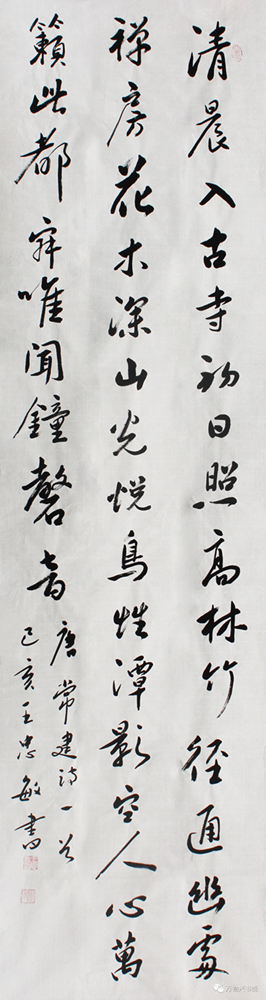 清晨入古寺初日照高林竹径通幽處
禅房花木深山光悦鳥性潭影空人心萬
籟此都寂唯聞鐘磬音
唐常建詩一首
己亥王忠敏書